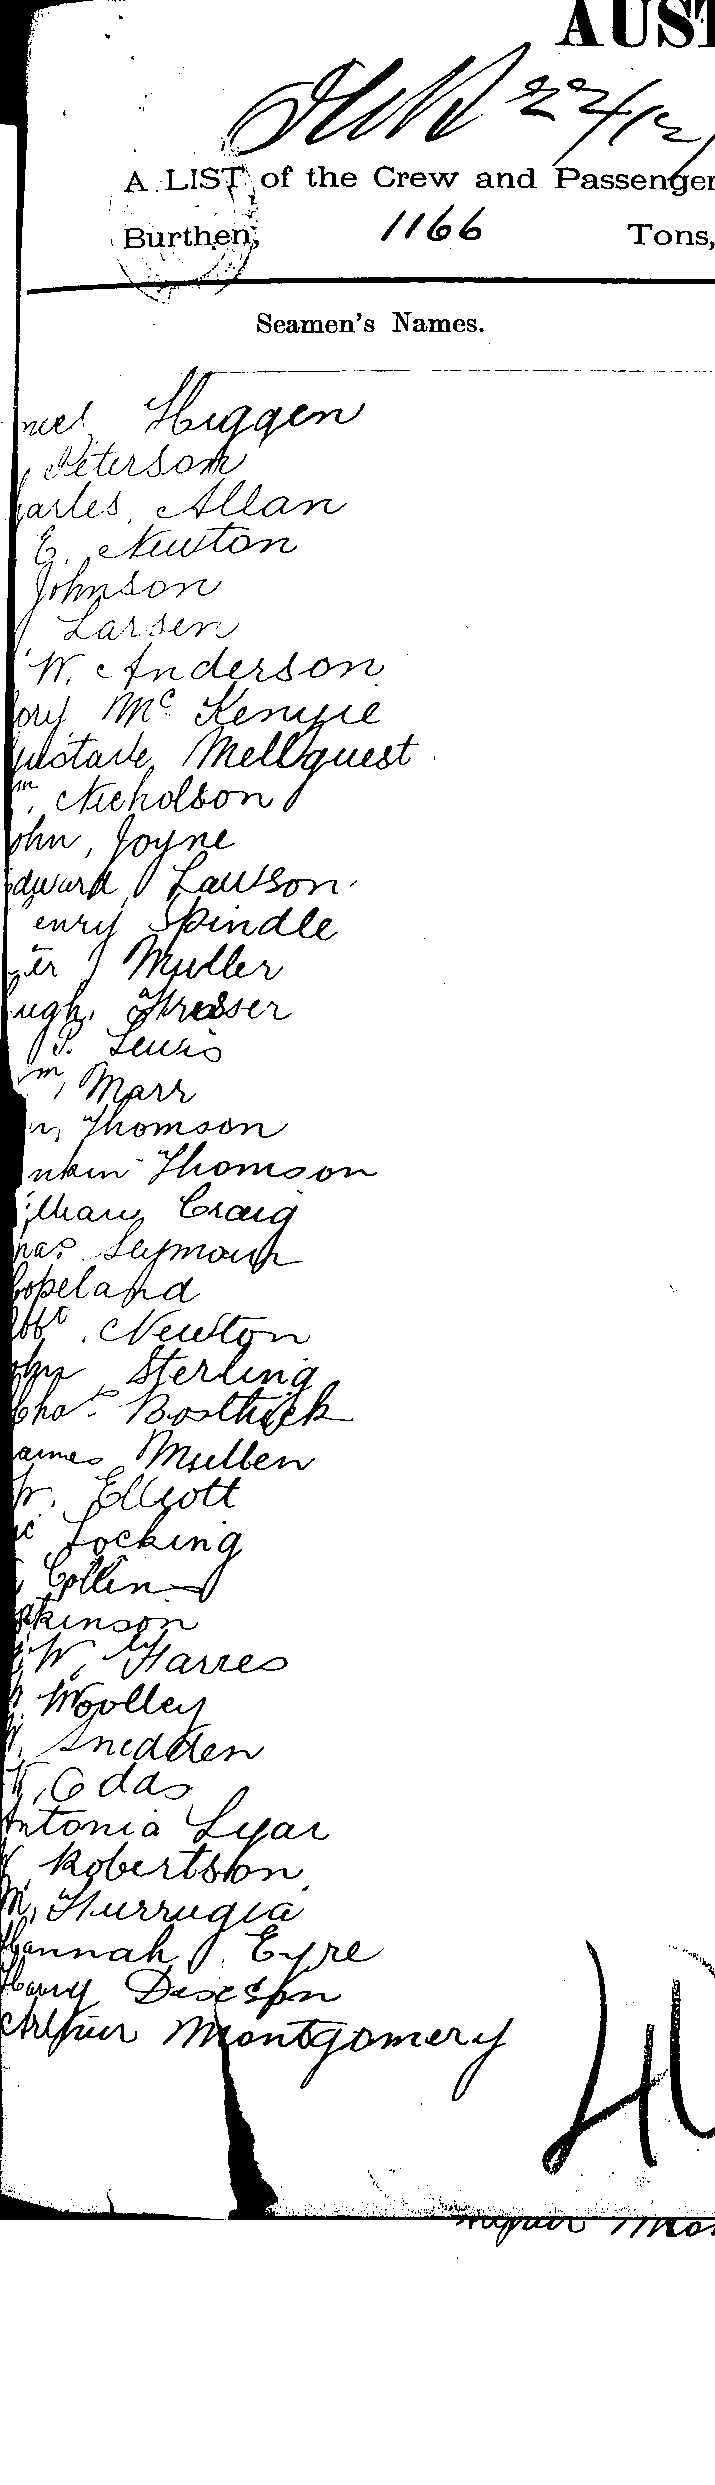 AUST
22/12/
A LIST of the Crew and Passenger
Burthen, 1166 Tons,
Seamen's Names.
Higgen
Peterson
arles, Allan
E. Newton
Johnson
Larsen
W. Anderson
ory Mc Kenzie
ustave Mellquest
m, Nicholson
ohn, Joyne
dward Lawson
enry Spindle
ter Muller
ugh,
P. Lewis
m, Marr
n, Thomson
Thomson
illiam Craig
mas Seymour
Copeland
obt. Newton
ohn Sterling
Chas. Bosthick
ames Mullen
W. Elliott
Locking
Collins
tkinson
W. Farres
Woolley
Snedden
Odas
Antonia Lyar
Robertson
M, Furrugia
Hannah Eyre
Harry Dixeson
Arthur Montgomery
40